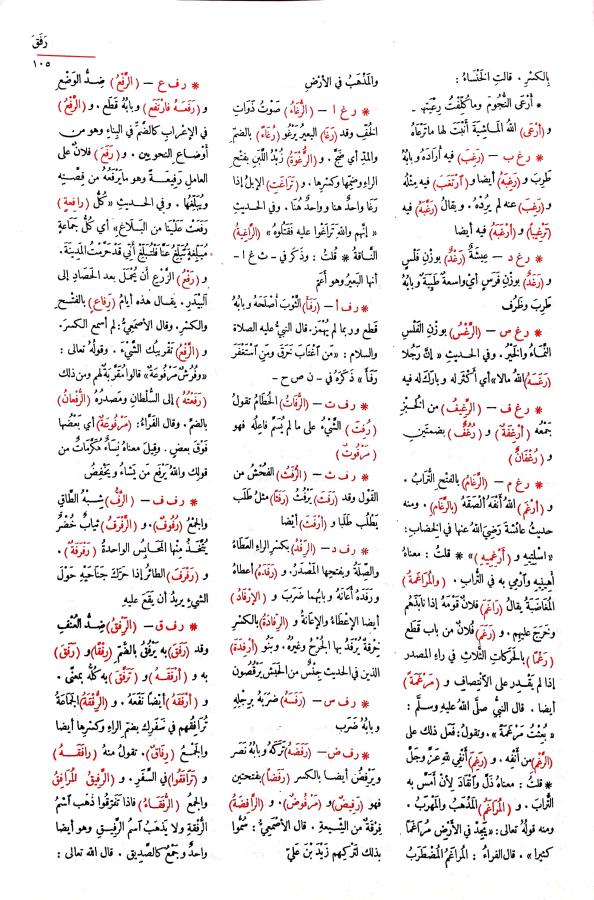 رَفَقَ
١٠٥
بِالكسْرِ . قالتِ الخَنْساءُ :
* أَرْعَى النُّجُومَ وما كُلِّفْتُ رِعْيَتَها ـ
و (أَرْعَى) اللهُ المَاشِيَةَ أَنْبَتَ لها ما تَرْعَاهُ
* رغ ب ـ (رَغِبَ) فيه أرَادَهُ وبابُهُ
طَرِبَ و (رَغْبَةً) أيضا و (ارْتَغَبَ) فيه مِثْلُهُ
و (رَغِبَ) عنه لم يُرِدْهُ . ويقالُ (رَغَّبَهُ) فيه
(تَرْغِيباً) و (أَرْغَبَهُ) فيه أيضا
* رغ د ـ عِيشَةٌ (رَغْدٌ) بوزنِ فَلْسٍ
و (رَغَدٌ) بوزنِ فَرَسٍ أيْ واسعةٌ طَيِّبَةٌ وبابُهُ
طَرِبَ وظَرُفَ
* رغ س ـ (الرَّغْسُ) بوزنِ الفَلْسِ
النَّماءُ والخَيْرُ . وفي الحديثِ «إنَّ رَجُلا
رَغَسَهُ اللهُ مالا» أي أَكْثَرَ له وباركَ له فيه
* رغ ف ـ (الرَّغِيفُ) من الخُبْزِ
جَمْعُه (أَرْغِفَةٌ) و (رُغُفٌ) بضمتينِ
و (رُغْفَانٌ)
* رغ م ـ (الرَّغَامُ) بالفتحِ التُّرابُ .
و (أَرْغَمَ) اللهُ أَنْفَهُ أَلْصَقَهُ (بالرَّغَامِ) . ومنه
حديثُ عائشةَ رضيَ اللهُ عنها في الخِضابِ:
«اسْلِتِيهِ و (أَرْغِمِيهِ) » * قلتُ : معناهُ
أَهِينِيهِ وآرْمِي به في التُّرابِ . (والمُرَاغَمَةُ)
المُغَاضَبَةُ يقالُ (رَاغَمَ) فلانٌ قومَهُ إذا نابَذَهُم
وخَرَجَ عليهم . و (رَغَمَ) فُلانٌ من بابِ قَطَع
(رَغْماً) بالحَرَكاتِ الثَّلاثِ في راءِ المصدرِ
إذا لم يَقْدِرْ على الانْتِصافِ و (مَرْغَمَةً)
أيضا . قال النبيُّ صلَّى اللهُ عليه وسلَّم :
« بُعِثْتُ مَرْغَمَةً » . وتقولُ: فَعَلَ ذلك على
(الرَّغْمِ) من أنْفِه . و (رَغَمَ) أنْفِي لله عزَّ وجلَّ
* قلتُ : معناهُ ذَلَّ وآنْقَادَ لأنْ أَمَسَّ به
التُّرابَ . و (المُرَاغَمُ) المَذْهَبُ والمَهْرَبُ .
ومنه قولُهُ تعالى: «يَجِدْ في الأرْضِ مُرَاغَمًا
كثيرا » . قال الفرّاءُ : المُرَاغَمُ المُضْطَرَبُ
والمَذْهَبُ في الأرْضِ
* رغ ا ـ (الرُّغَاءُ) صَوْتُ ذَوَاتِ
الخُفِّ وقد (رَغَا) البعيرُ يَرْغُو (رُغَاءً) بالضمِّ
والمَدِّ أي ضَجَّ . و (الرُّغْوَةُ) زُبْدُ اللَّبَنِ بفتحِ
الراءِ وضمِّها وكسْرِها . و (تَرَاغَتِ) الإبِلُ إذا
رَغَا واحدٌ هنا وواحدٌ هُنا . وفي الحديثِ
«إنَّهم واللهِ تَرَاغَوْا عليه فقَتَلُوه » (الرَّاغِيَةُ)
النَّاقَةُ * قُلتُ : وذَكَر في ـ ثغ ا ـ
أنها البَعِيرُ وهو أَعَمُّ
* رف أ ـ (رَفَأَ) الثَّوْبَ أصْلَحَهُ وبابُهُ
قَطَع وربما لم يُهْمَزْ. قال النبيُّ عليه الصلاة
والسلام : «مَنِ آغْتَابَ خَرَقَ ومَنِ آسْتَغْفَرَ
رَفَأَ » ذَكَرَهُ في ـ ن ص ح ـ
* رف ت ـ (الرُّفَاتُ) الحُطَامُ تقولُ
(رُفِتَ) الشَّيْءُ على ما لم يُسَمَّ فاعِلُه فهو
(مَرْفُوتٌ)
* رف ث ـ (الرَّفَثُ) الفُحْشُ من
القولِ وقد (رَفَثَ) يَرْفُثُ (رَفَثاً) مثلُ طَلَبَ
يَطْلُبُ طَلَبا و (أَرْفَثَ) أيضا
* رف د ـ (الرِّفْدُ) بكسْرِ الراءِ العَطَاءُ
والصِّلَةُ وبفتحِها المصدَرُ. و (رَفَدَهُ) أعطاهُ
ورَفَدَهُ أعانَهُ وبابُهُما ضَرَبَ و (الإرْفَادُ)
أيضا الإعْطَاءُ والإعانَةُ و (الرِّفَادَةُ) بالكسْرِ
خِرْقةٌ يُرْفَدُ بها الجُرْحُ وغيرُهُ. وبَنُو (أَرْفِدَةَ)
الذين في الحديثِ جِنْسٌ من الحَبَشِ يَرْقُصُون
* رف س ـ (رَفَسَهُ) ضَرَبَهُ بِرِجْلِهِ
وبابُهُ ضَرَبَ
* رف ض ـ (رَفَضَهُ) تَرَكَهُ وبابُهُ نَصَر
ويَرْفِضُ أيضا بالكسرِ (رَفَضاً) بفتحتينِ
فهو (رَفِيضٌ) و (مَرْفُوضٌ) . و (الرَّافِضَةُ)
فِرْقَةٌ من الشِّيعةِ . قال الأصْمَعيُّ : سُمُّوا
بذلك لِتَرْكِهم زَيْدَ بْنَ عَلِيٍّ
* رف ع ـ (الرَّفْعُ) ضِدُّ الوَضْعِ
و (رَفَعَهُ فارْتَفَعَ) وبابُهُ قَطَع . و (الرَّفْعُ)
في الإعْرَابِ كالضَّمِّ في البِنَاءِ وهو من
أوْضاعِ النحويينَ . و (رَفَعَ) فلانٌ على
العاملِ رَفِيعةً وهو ما يَرْفَعُهُ من قِصَّتِهِ
ويُبَلِّغُها . وفي الحديثِ «كُلُّ (رافِعةٍ)
رَفَعَتْ علينا من البَلَاغِ» أي كلُّ جماعةٍ
مُبَلِّغةٍ تُبَلِّغُ عنَّا فلتُبَلِّغْ أنِّي قد حَرَّمْتُ المدينةَ.
و (رَفْعُ) الزَّرْعِ أن يُحْمَلَ بعد الحَصَادِ إلى
البَيْدَرِ. يقالُ هذه أيامُ (رَفَاعٍ) بالفتْحِ
والكسرِ. وقال الأصمعيُّ: لم أَسْمَعِ الكسرَ.
و (الرَّفْعُ) تَقْرِيبُكَ الشَّيْءَ . وقولُهُ تعالى :
«وفُرُشٍ مَرْفُوعَةٍ» قالوا مُقَرَّبَةٍ لهم ومن ذلك
(رَفَعْتُهُ) إلى السُّلطانِ ومَصْدَرُهُ (الرُّفْعَانُ)
بالضمِّ. وقال الفَرَّاءُ: (مَرْفُوعَةٍ) أي بَعْضُها
فَوْقَ بعضٍ . وقيلَ معناهُ نِسَاءٌ مُكَرَّمَاتٌ من
قولِك واللهُ يَرْفَعُ مَن يَشَاءُ ويَخْفِضُ
* رف ف ـ (الرَّفُّ) شِبْهُ الطَّاقِ
والجمعُ (رُفُوفٌ). و (الرَّفْرَفُ) ثيابٌ خُضْرٌ
يُتَّخَذُ منها المَحَابِسُ الواحدةُ (رَفْرَفَةٌ) .
و (رَفْرَفَ) الطائرُ إذا حَرَّكَ جَنَاحَيْهِ حَوْلَ
الشيءِ يريدُ أن يَقَعَ عليهِ
* رف ق ـ (الرِّفْقُ) ضِدُّ العُنْفِ
وقد (رَفَقَ) به يَرْفُقُ بالضَّمِّ (رِفْقاً) و (رَفَقَ)
به و (أَرْفَقَهُ) و (تَرَفَّقَ) به كلُّه بمعنًى .
و (أَرْفَقَهُ) أيضا نَفَعَهُ . و (الرُّفْقَةُ) الجَمَاعةُ
تُرَافِقُهُم في سَفَرِكَ بضمِّ الراءِ وكسرِها أيضا
والجمعُ (رِفَاقٌ) . تقولُ منهُ (رَافَقَهُ)
و (تَرَافَقُوا) في السَّفَرِ . و (الرَّفِيقُ المُرَافِقُ)
والجمعُ (الرُّفَقَاءُ) فإذا تفرَّقوا ذَهَب آسمُ
الرُّفْقَةِ ولا يَذْهَبُ آسمُ الرَّفِيقِ وهو أيضا
واحدٌ وجَمْعٌ كالصديقِ . قال اللهُ تعالى :